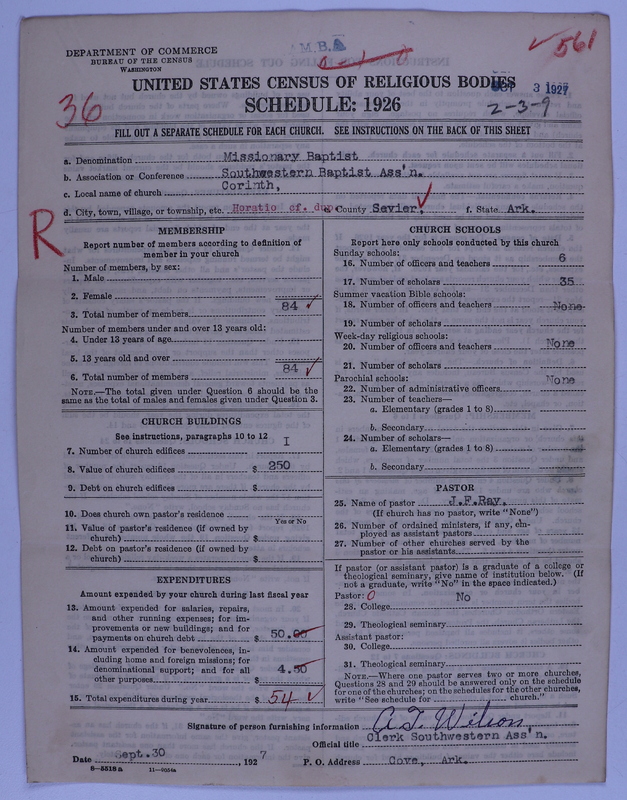 DEPARTMENT OF COMMERCE
BUREAU OF THE CENSUS
WASHINGTON
M.B.A
561
36
3 1927
2-3-9
UNITED STATES CENSUS OF RELIGIOUS BODIES
SCHEDULE: 1926
FILL OUT A SEPARATE SCHEDULE FOR EACH CHURCH. SEE INSTRUCTIONS ON THE BACK OF THIS SHEET
a. Denomination Missionary Baptist
b. Association or Conference Southwestern Baptist Ass'n.
c. Local name of church Corinth,
d. City, town, village, or township, etc. Horatio cf. dup County Sevier, f. State Ark.
R
MEMBERSHIP
Report number of members according to definition of
member in your church
Number of members, by sex:
1. Male
2. Female
3. Total number of members 84
Number of members under and over 13 years old:
4. Under 13 years of age
5. 13 years old and over
6. Total number of members 84
NOTE.—The total given under Question 6 should be the
same as the total of males and females given under Question 3.
CHURCH BUILDINGS
See instructions, paragraphs 10 to 12
7. Number of church edifices I
8. Value of church edifices $ 250
9. Debt on church edifices $
10. Does church own pastor's residence
Yes or No
11. Value of pastor's residence (if owned by
church) $
12. Debt on pastor's residence (if owned by
church) $
EXPENDITURES
Amount expended by your church during last fiscal year
13. Amount expended for salaries, repairs,
and other running expenses; for im-
provements or new buildings; and for
payments on church debt $ 50.00
14. Amount expended for benevolences, in-
cluding home and foreign missions; for
denominational support; and for all
other purposes $ 4.50
15. Total expenditures during year $ 54
CHURCH SCHOOLS
Report here only schools conducted by this church
Sunday schools:
16. Number of officers and teachers 6
17. Number of scholars 35
Summer vacation Bible schools:
18. Number of officers and teachers None
19. Number of scholars
Week-day religious schools:
20. Number of officers and teachers None
21. Number of scholars
Parochial schools:
22. Number of administrative officers None
23. Number of teachers—
a. Elementary (grades 1 to 8)
b. Secondary
24. Number of scholars—
a. Elementary (grades 1 to 8)
b. Secondary
PASTOR
25. Name of pastor J.F.Ray,
(If church has no pastor, write "None")
26. Number of ordained ministers, if any, em-
ployed as assistant pastors
27. Number of other churches served by the
pastor or his assistants
If pastor (or assistant pastor) is a graduate of a college or
theological seminary, give name of institution below. (If
not a graduate, write "No" in the space indicated.)
Pastor: 0
28. College No
29. Theological seminary
Assistant pastor:
30. College
31. Theological seminary
NOTE.—Where one pastor serves two or more churches,
Questions 28 and 29 should be answered only on the schedule
for one of the churches; on the schedules for the other churches,
write "See schedule for church."
Signature of person furnishing information A. T. Wilson
Official title Clerk Southwestern Ass'n.
Date Sept.30, 1927 P. O. Address Cove, Ark.
6—5518a 11—9054a